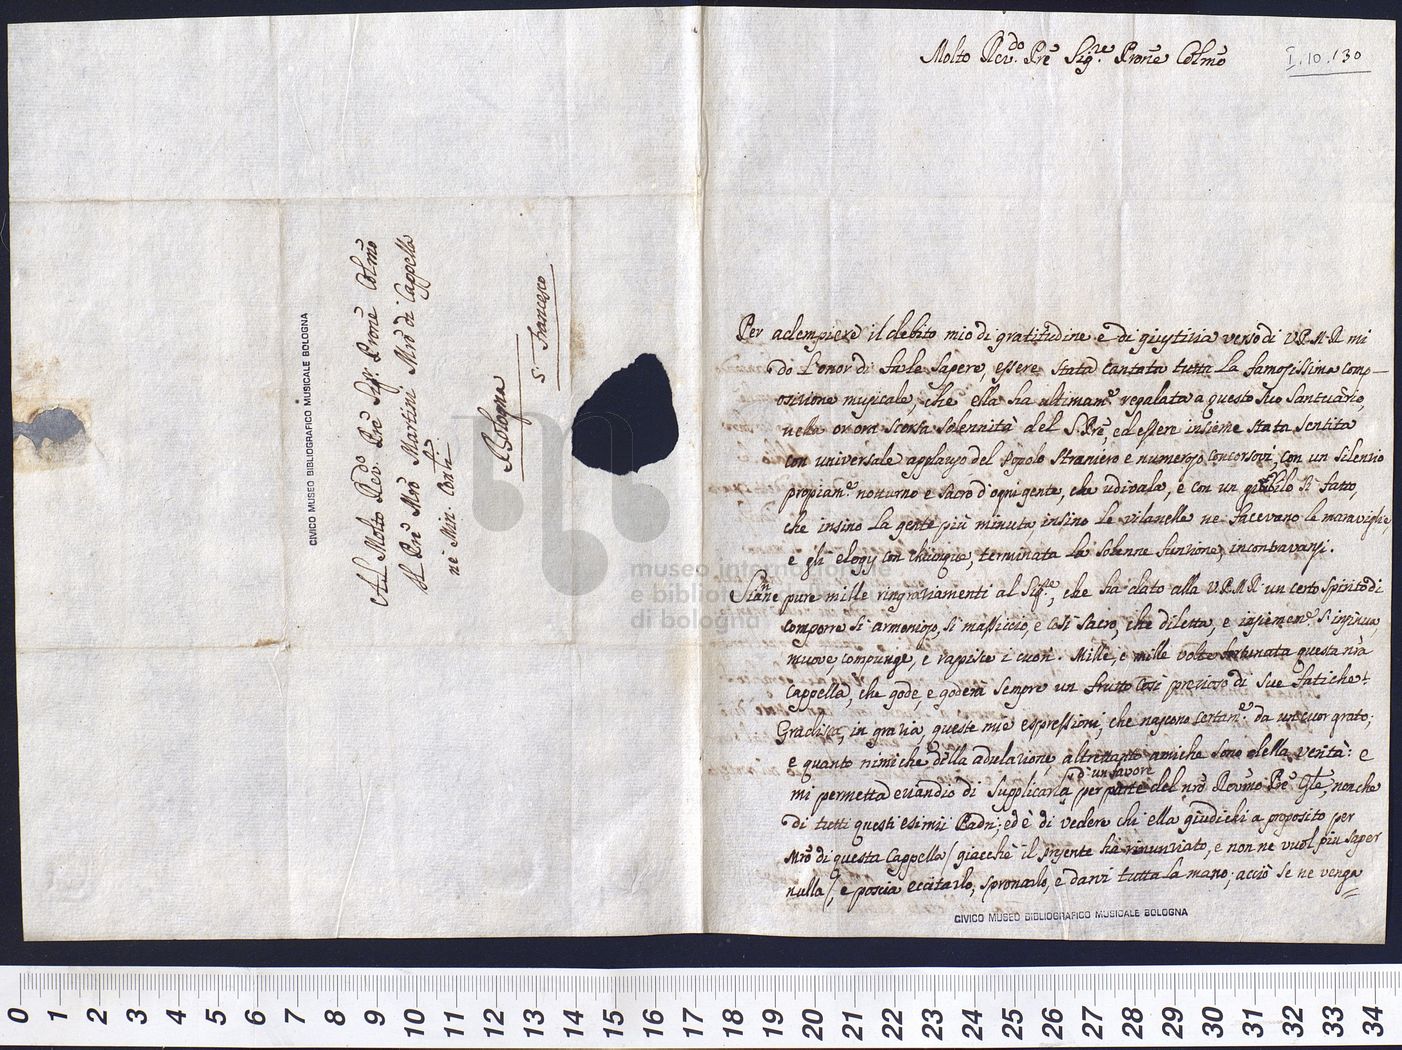 Molto Rev.do Pre Sig.re Prone Colmo
I.10.130
Per adempiere il debito mio di gratitudine e di giustizia verso di V.P.M.R. mi
do l'onor di farle sapere, essere stata cantata tutta la famosissima comp-
osizione musicale, che ella ha ultimam.e regalata a questo suo Santuario,
nella or ora scorsa solennità del S. Pre, ed essere insieme stata sentita
con universale applauso del Popolo straniero e numeroso concorsovi, con un silenzio
propiam.e notturno e sacro d'ogni gente, che udivala, e con un giubilo sì fatto,
che insino la gente più minuta, insino le vilanelle ne facevano le maraviglie,
e gli elogj con chiunque, terminata la solenne funzione, incontravansi.
Sianne pure mille ringraziamenti al Sig.re, che ha dato alla V.P.M.R. un certo spirito di
comporre sì armonioso, sì massiccio, e così sacro, che diletta, e insiemem.e s'insinua,
muove, compunge, e rapisce i cuori. Mille, e mille volte fortunata questa nra
Cappella, che gode, e goderà sempre un frutto così prezioso di sue fatiche!
Gradisca, in grazia, queste mie espressioni, che nascono certam.e da un cuor grato;
e quanto nimiche della adulazione, altrettanto amiche sono della verità: e
d'un favore
mi permetta eziandio di supplicarla per parte del nro Revmo Pre Gle, nonche
di tutti questi esimii Padri; ed è di vedere chi ella giudichi a proposito per
Mro di questa Cappella / giacchè il presente ha rinunziato, e non ne vuol più saper
nulla /, e poscia eccitarlo, spronarlo, e darvi tutta la mano; acciò se ne venga
CIVICO MUSEO BIBLIOGRAFICO MUSICALE BOLOGNA
Al Molto Rev.do Pre Sig.r Prone Colmo
Il Pre Mro Martini Mro di Cappella
ne Min. Conti
Bologna
S. Francesco
CIVICO MUSEO BIBLIOGRAFICO MUSICALE BOLOGNA
museo internazionale
biblioteca
di bologna
0 1 2 3 4 5 6 7 8 9 10 11 12 13 14 15 16 17 18 19 20 21 22 23 24 25 26 27 28 29 30 31 32 33 34